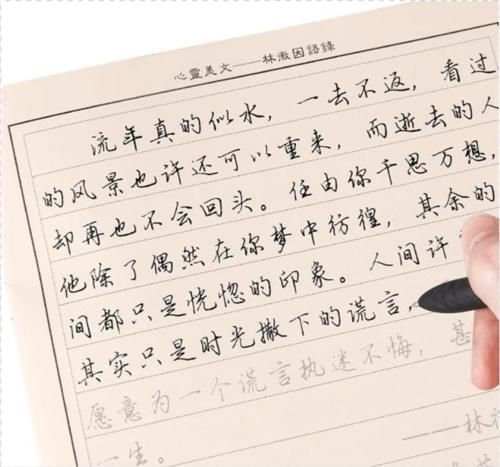 心靈美文——林徽因語錄
流年真的似水，一去不返，看过
的风景也许还可以重来，而逝去的人
却再也不会回头。任由你千思万想，
他除了偶然在你梦中彷徨，其余的
间都只是恍惚的印象。人间许
其实只是时光撒下的谎言，
愿意为一个谎言执迷不悔，甚
一生。
——林